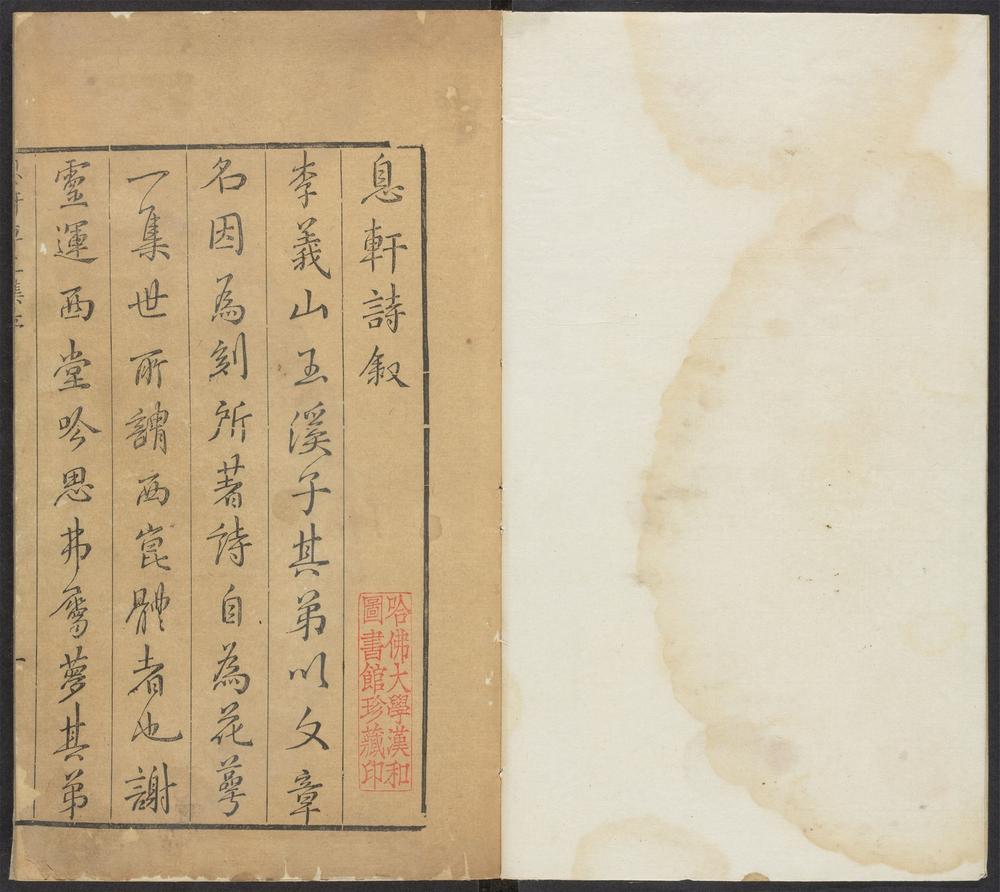 息軒詩叙
李義山玉溪子其弟以文章
名因為刻所著詩自為花萼
一集世所謂西崑體者也謝
靈運西堂吟思弗屬夢其弟
哈佛大學漢和
圖書館珍藏印